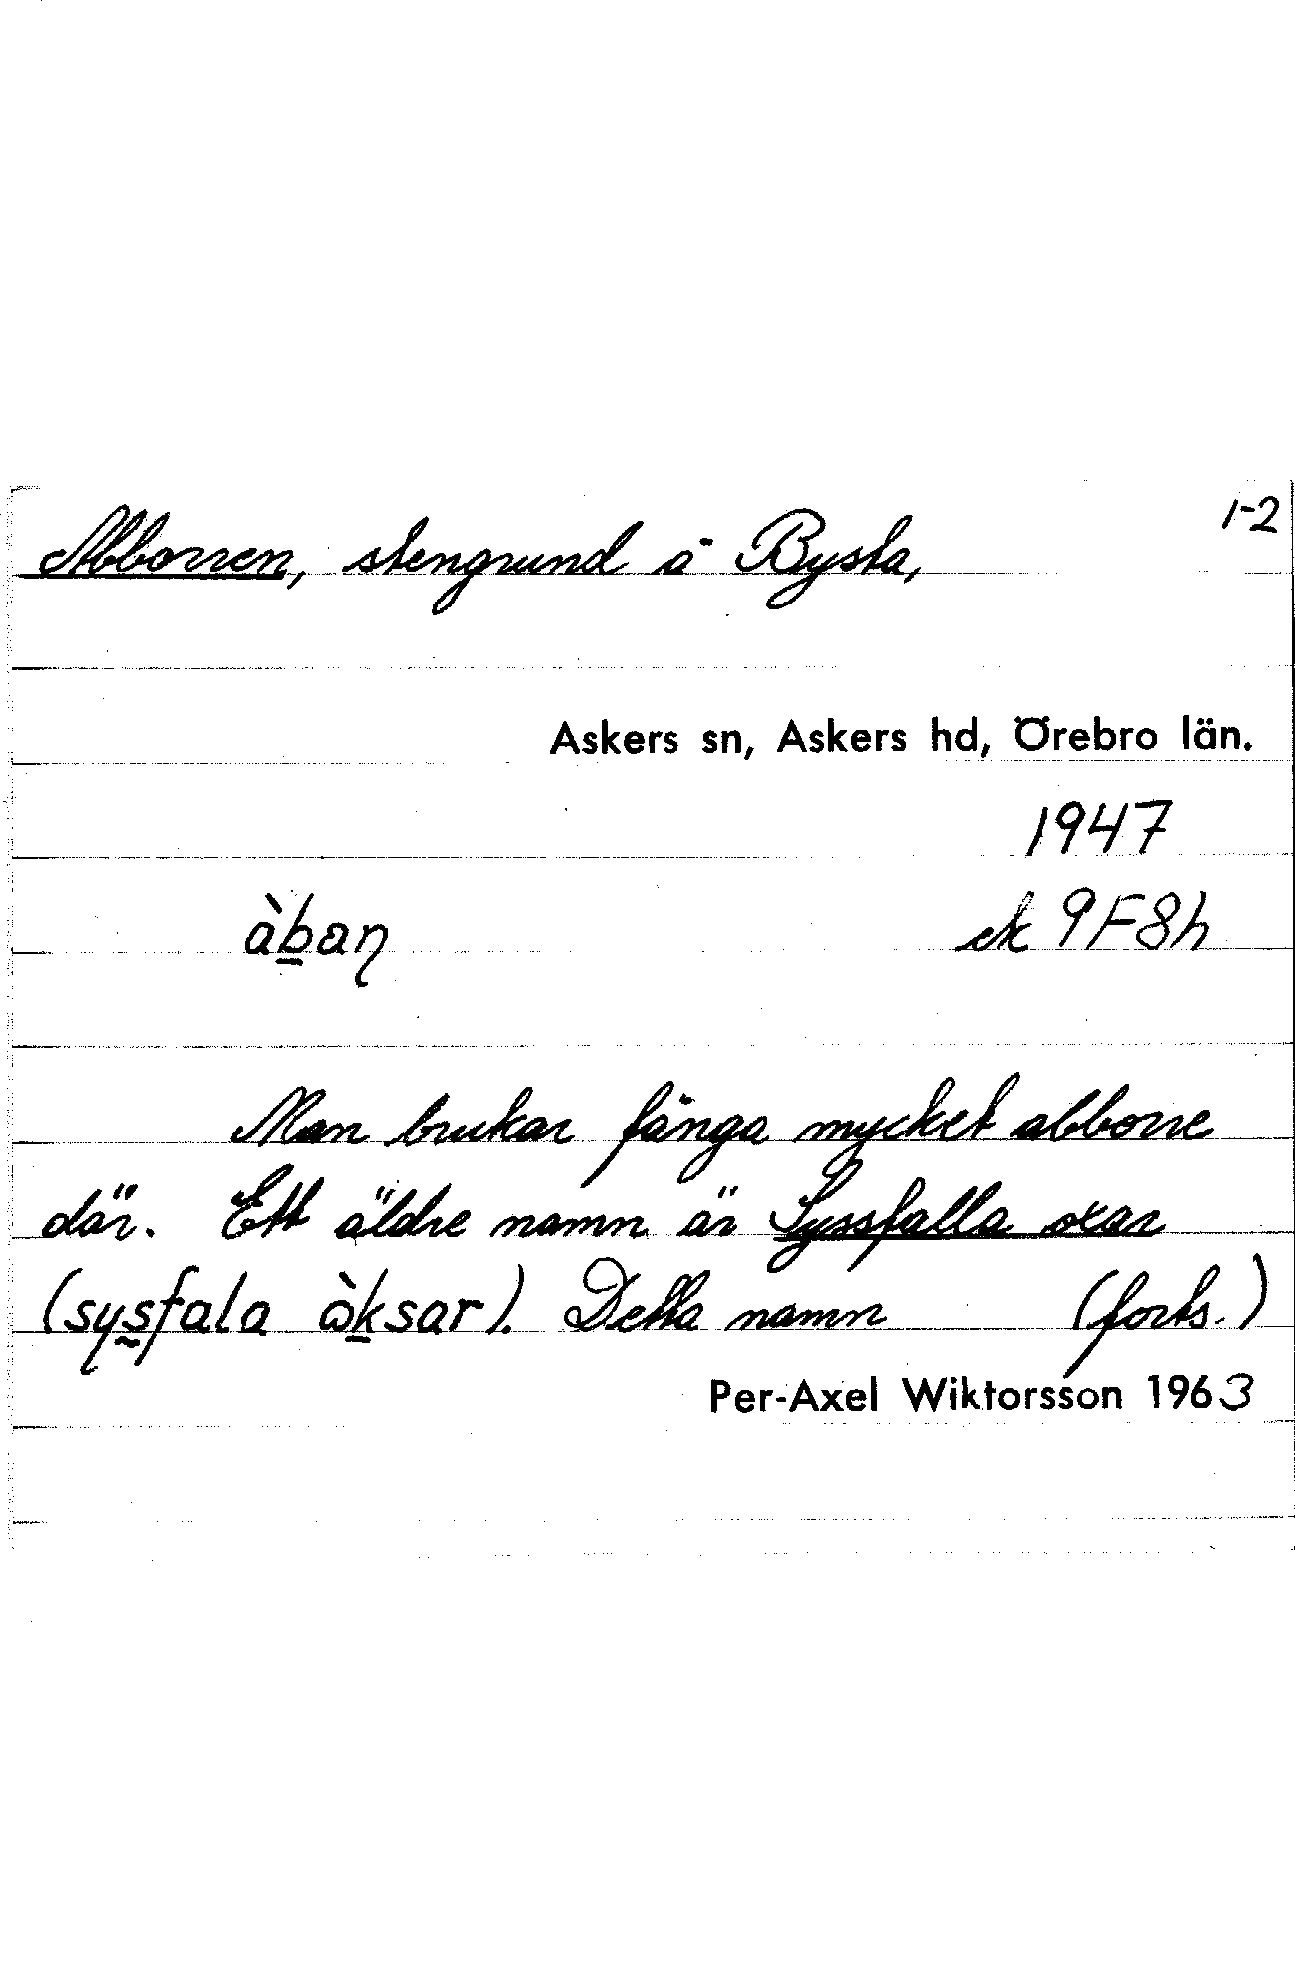 1-2
Abborren, stengrund å Bysta,
Askers sn, Askers hd, Örebro län.
1947
àban̦ ek 9F8h
Man brukar fånga mycket abborre
där. Ett äldre namn är Syssfalla oxar
(sysfala òksar). Detta namn (forts.)
Per-Axel Wiktorsson 1963